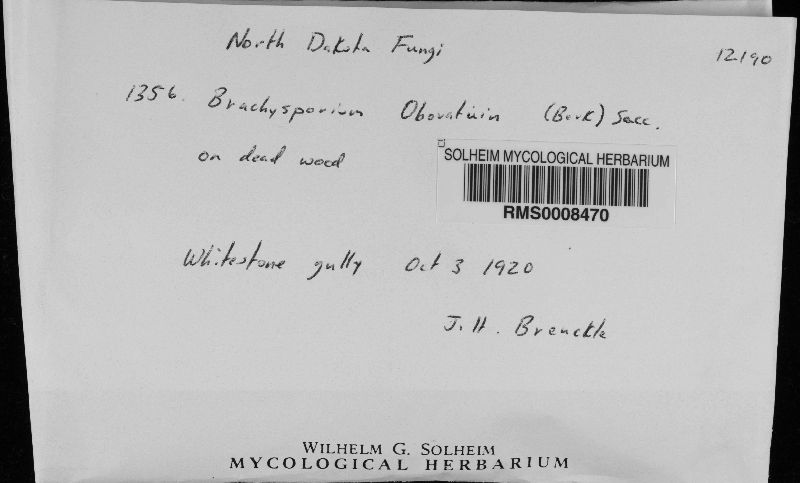 North Dakota Fungi
12190
1356. Brachysporium Obovatum (Berk) Sacc.
on dead wood
SOLHEIM MYCOLOGICAL HERBARIUM
RMS0008470
Whitestone gully Oct 3 1920
J. H. Brenckle
WILHELM G. SOLHEIM
MYCOLOGICAL HERBARIUM